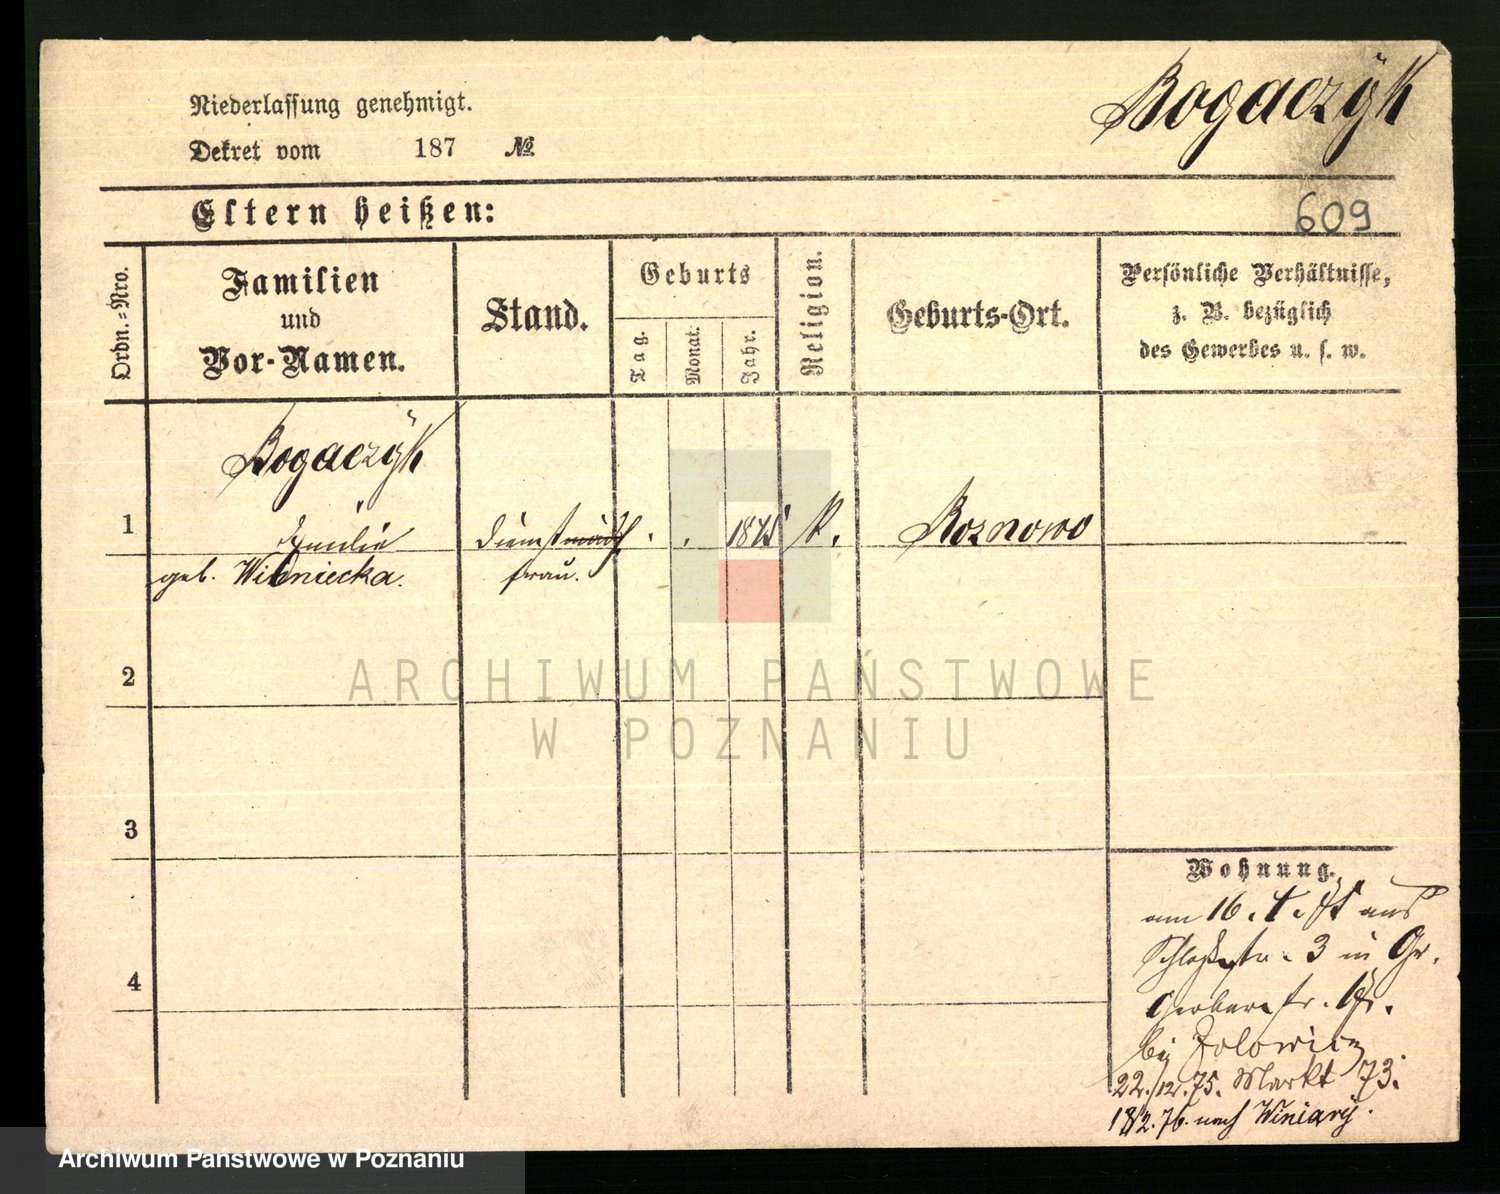 Niederlassung genehmigt.
Dekret vom 187 №
Bogaczÿk
Eltern heißen:
609
Ordn.-Nro.
Familien
und
Vor-Namen.
Stand.
Geburts
Tag.
Monat.
Jahr.
Religion.
Geburts-Ort.
Persönliche Verhältnisse,
z. B. bezüglich
des Gewerbes u. s. w.
1
Bogaczÿk
Emilie
geb. Wisniecka.
Dienst
frau.
K.
Rosnowo
2
3
4
Wohnung.
am 16. aus
Schloßstr. 3 in Gr.
Gerberstr.
bei Jolowicz
22./12.75. Markt 73.
nach Winiary.
ARCHIWUM PAŃSTWOWE
W POZNANIU
Archiwum Państwowe w Poznaniu